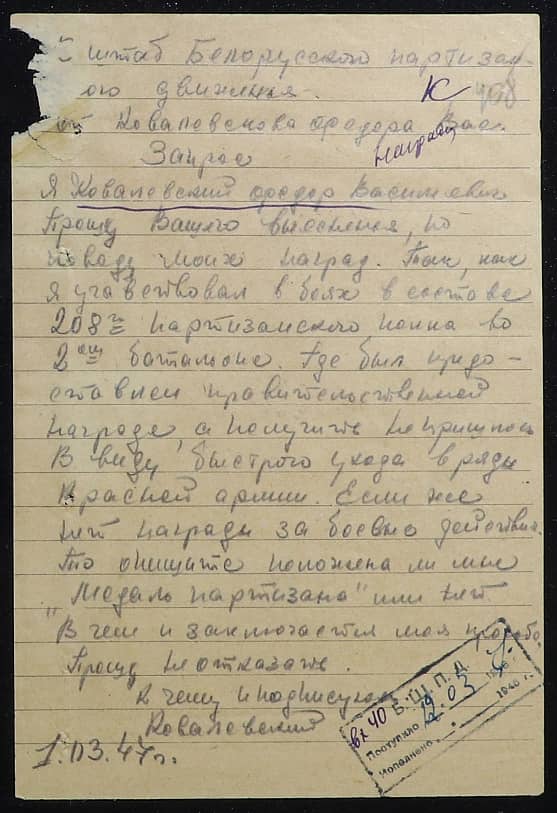 штаб Белорусского партизан-
ого движения.
от Ковалевскова Федора Вас.
К
наградам
Запрос
Я Ковалевский Федор Василевич
Прошу Вашего выеснения, по
поводу моих наград. Так, как
я учавствовал в боях в составе
208й партизанского полка во
2ом батальоне. Где был предо-
ставлен правительственной
награде, а получить непришлось
В виду быстрого ухода в ряды
Красной армии. Если же
нет награды за боевые действия.
То опишите положена ли мне
"Медаль партизана" или нет
В чем и заключается моя прозьба.
Прошу неотказать.
К чему и подписуюсь
Ковалевский
1.03.47г.
Б.Ш.П.Д.
вх 40
Поступило 12.03
Исполнено 1946 г.